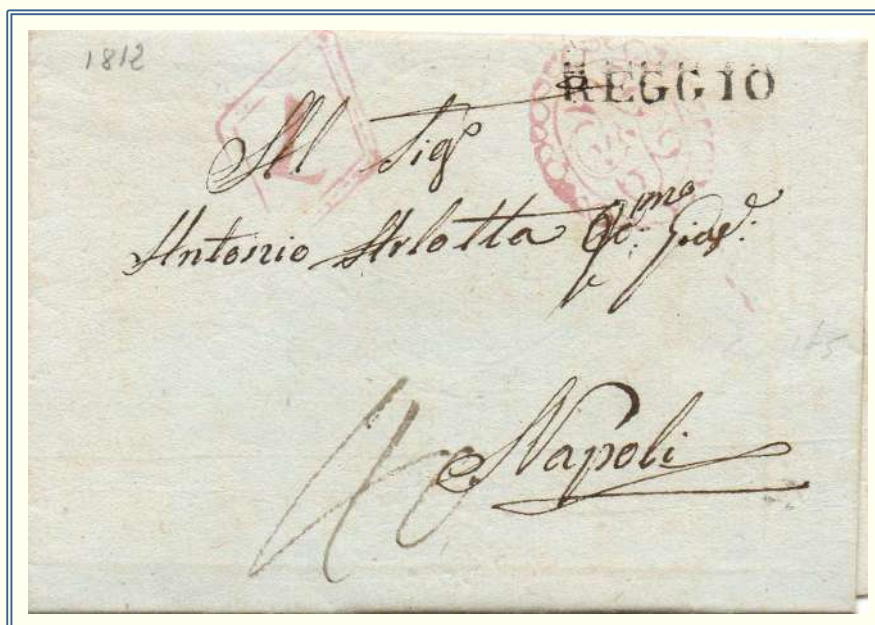 1812
REGGIO
All Sigr
Antonio Arlotta Qmo. Gias.
Napoli